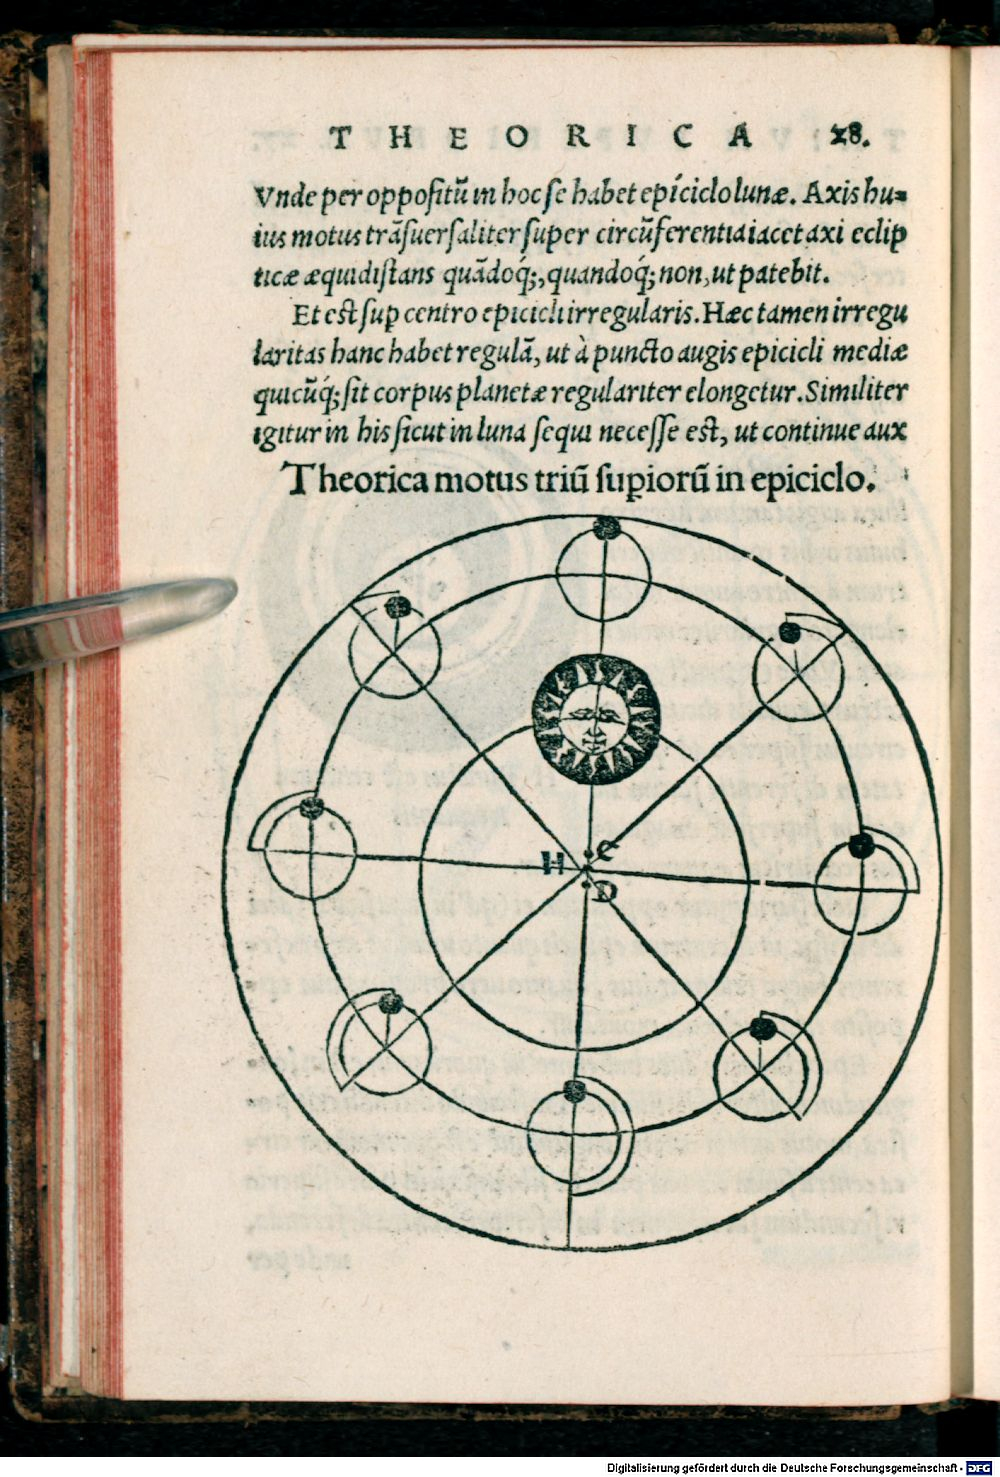 THEORICA 28.
Vnde per oppoſitũ in hoc ſe habet epíciclo lunæ. Axis hu=
ius motus trãſuerſaliter ſuper circũferentia iacet axi eclip
ticæ æquidiſtans quãdoq́;, quandoq́; non, ut patebit.
Et eſt ſup centro epicicli irregularis. Hæc tamen irregu
laritas hanc habet regulã, ut à puncto augis epicicli mediæ
quicũq́; ſit corpus planetæ regulariter elongetur. Similiter
igitur in his ſicut in luna ſequi neceſſe eſt, ut continue aux
Theorica motus triũ ſupiorũ in epiciclo.
H C
D
Digitalisierung gefördert durch die Deutsche Forschungsgemeinschaft - DFG